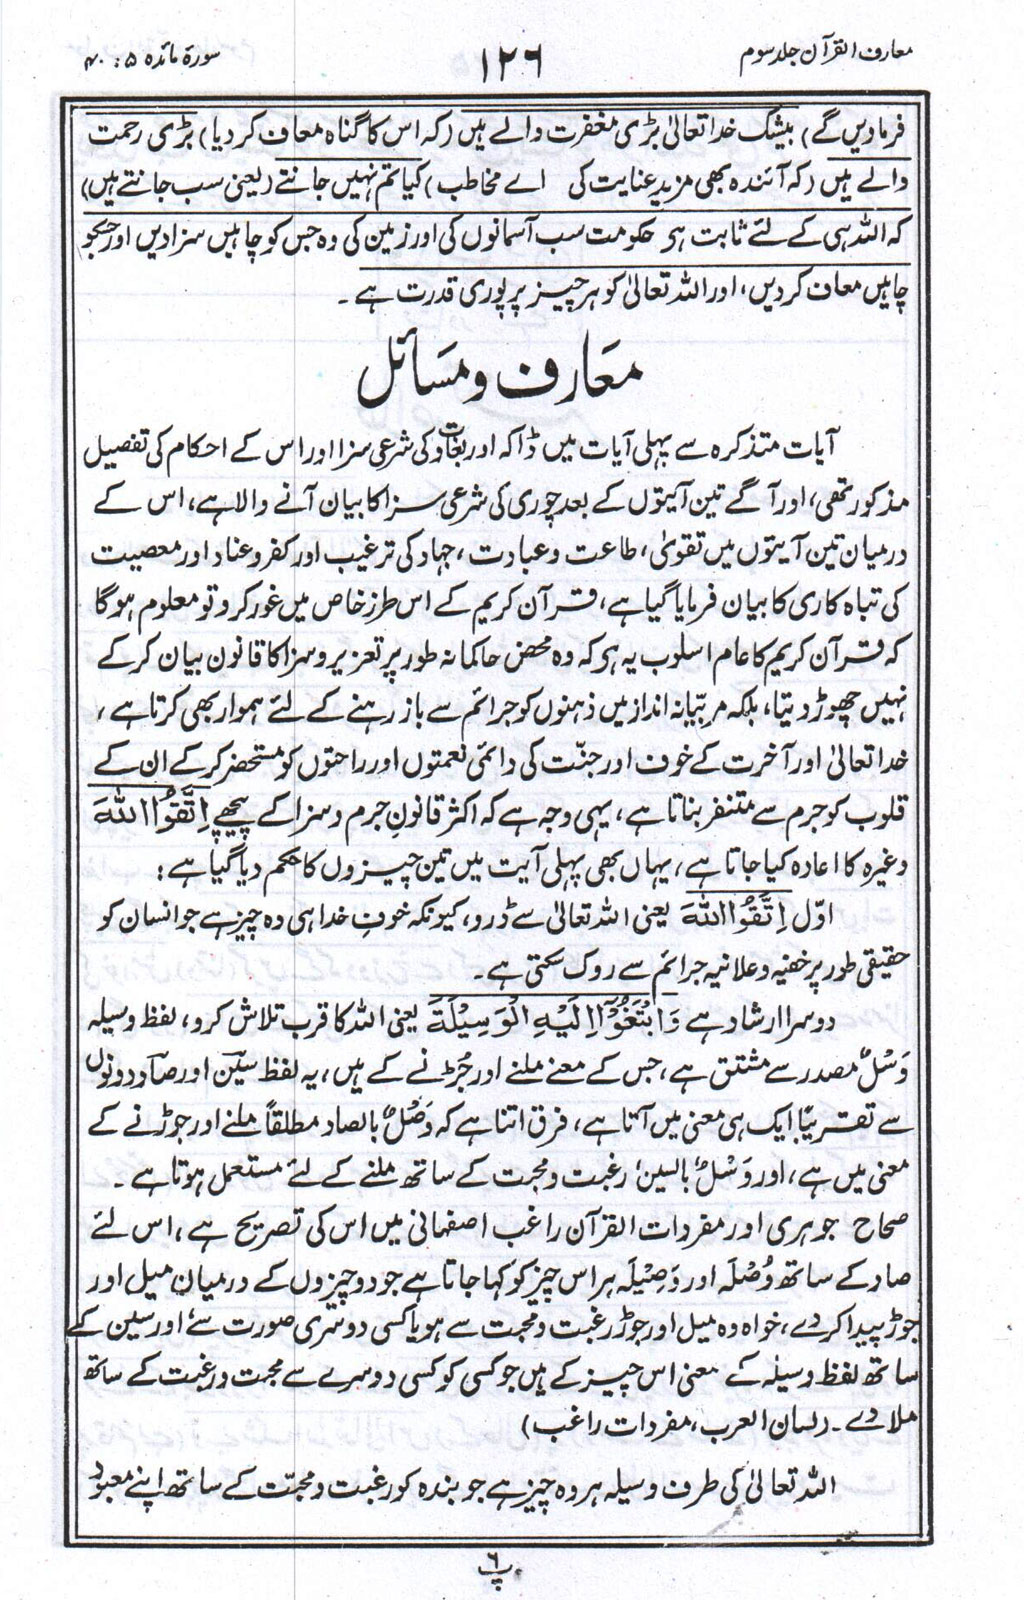 معارف القرآن جلد سوم
۱۲۶
سورۃ مائدہ ۵ : ۴۰
فرمادیں گے) بیشک خدا تعالیٰ بڑی مغفرت والے ہیں (کہ اس کا گناہ معاف کر دیا) بڑی رحمت
والے ہیں (کہ آئندہ بھی مزید عنایت کی اے مخاطب) کیا تم نہیں جانتے (یعنی سب جانتے ہیں)
کہ اللہ ہی کے لئے ثابت ہی حکومت سب آسمانوں کی اور زمین کی وہ جس کو چاہیں سزا دیں اور جسکو
چاہیں معاف کر دیں، اور اللہ تعالیٰ کو ہر چیز پر پوری قدرت ہے۔
معارف و مسائل
آیات متذکرہ سے پہلی آیات میں ڈاکہ اور بغاوت کی شرعی سزا اور اس کے احکام کی تفصیل
مذکور تھی، اور آگے تین آیتوں کے بعد چوری کی شرعی سزا کا بیان آنے والا ہے، اس کے
درمیان تین آیتوں میں تقویٰ، طاعت و عبادت، جہاد کی ترغیب اور کفر و عناد اور معصیت
کی تباہ کاری کا بیان فرمایا گیا ہے، قرآن کریم کے اس طرز خاص میں غور کرو تو معلوم ہوگا
کہ قرآن کریم کا عام اسلوب یہ ہی کہ وہ محض حاکمانہ طور پر تعزیر و سزا کا قانون بیان کر کے
نہیں چھوڑ دیتا، بلکہ مربّیانہ انداز میں ذہنوں کو جرائم سے باز رہنے کے لئے ہموار بھی کرتا ہے،
خدا تعالیٰ اور آخرت کے خوف اور جنّت کی دائمی نعمتوں اور راحتوں کو مستحضر کر کے ان کے
قلوب کو جرم سے متنفر بناتا ہے، یہی وجہ ہے کہ اکثر قانونِ جرم و سزا کے پیچھے اِتَّقُوا اللّٰهَ
وغیرہ کا اعادہ کیا جاتا ہے، یہاں بھی پہلی آیت میں تین چیزوں کا حکم دیا گیا ہے:
اوّل اِتَّقُوا اللّٰهَ یعنی اللہ تعالیٰ سے ڈرو، کیونکہ خوفِ خدا ہی وہ چیز ہے جو انسان کو
حقیقی طور پر خفیہ و علانیہ جرائم سے روک سکتی ہے۔
دوسرا ارشاد ہے وَابْتَغُوْٓا اِلَيْهِ الْوَسِيْلَةَ یعنی اللہ کا قرب تلاش کرو، لفظ وسیلہ
وَسْلٌ مصدر سے مشتق ہے، جس کے معنے ملنے اور جُڑنے کے ہیں، یہ لفظ سین اور صاد دونوں
سے تقریبًا ایک ہی معنی میں آتا ہے، فرق اتنا ہے کہ وَصْلٌ بالصاد مطلقاً ملنے اور جوڑنے کے
معنی میں ہے، اور وَسْلٌ بالسین رغبت و محبت کے ساتھ ملنے کے لئے مستعمل ہوتا ہے۔
صحاح جوہری اور مفردات القرآن راغب اصفہانی میں اس کی تصریح ہے، اس لئے
صاد کے ساتھ وُصْلَہ اور وَصِیْلَہ ہر اس چیز کو کہا جاتا ہے جو دو چیزوں کے درمیان میل اور
جوڑ پیدا کر دے، خواہ وہ میل اور جوڑ رغبت و محبت سے ہو یا کسی دوسری صورت سے اور سین کے
ساتھ لفظ وسیلہ کے معنی اس چیز کے ہیں جو کسی کو کسی دوسرے سے محبت و رغبت کے ساتھ
ملا دے۔ (لسان العرب، مفردات راغب)
اللہ تعالیٰ کی طرف وسیلہ ہر وہ چیز ہے جو بندہ کو رغبت و محبّت کے ساتھ اپنے معبود
پ ۶